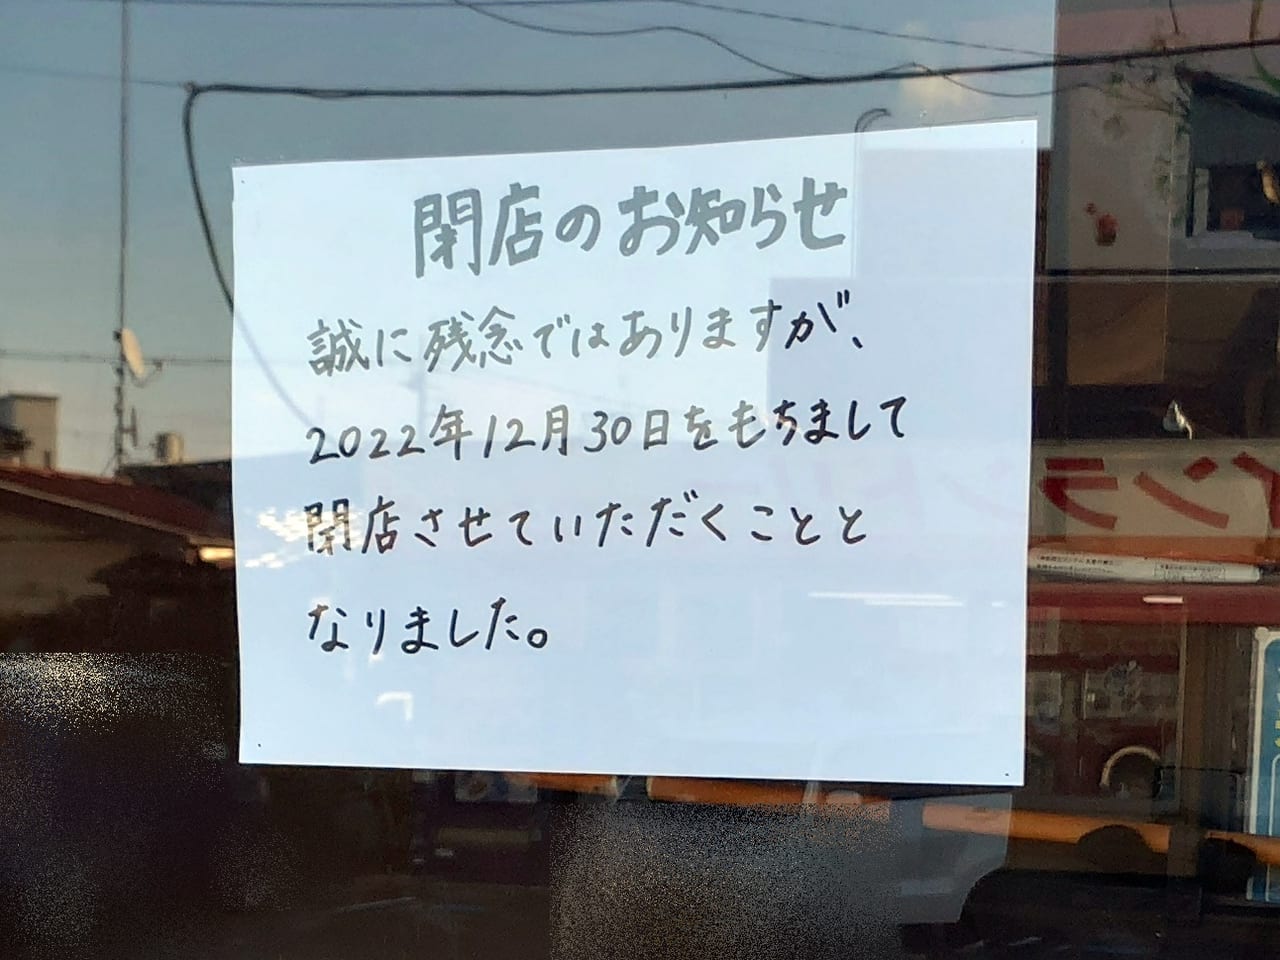 閉店のお知らせ
誠に残念ではありますが、
2022年12月30日をもちまして
閉店させていただくことと
なりました。